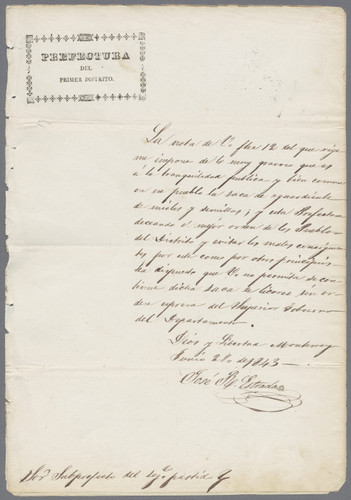 PREFECTURA
DEL
PRIMER DISTRITO.
La nota de V. fha 12 del que rije
me impone de lo muy gravoso que es
á la tranquilidad publica y bien comun
en su pueblo la saca de aguardiente
de mieles y semillas; y esta Prefectura
deseando el mejor orden de los Pueblos
del Distrito y evitar los males consiguien
tes por este como por otros principios
ha dispuesto que V. no permita se con
tinue dicha saca de licores sin or
den espresa del Superior Gobierno
del Departamento.
Dios y Libertad Monterrey
Junio 2 de 1843
José R. Estrada
Sor Subprefecto del partido